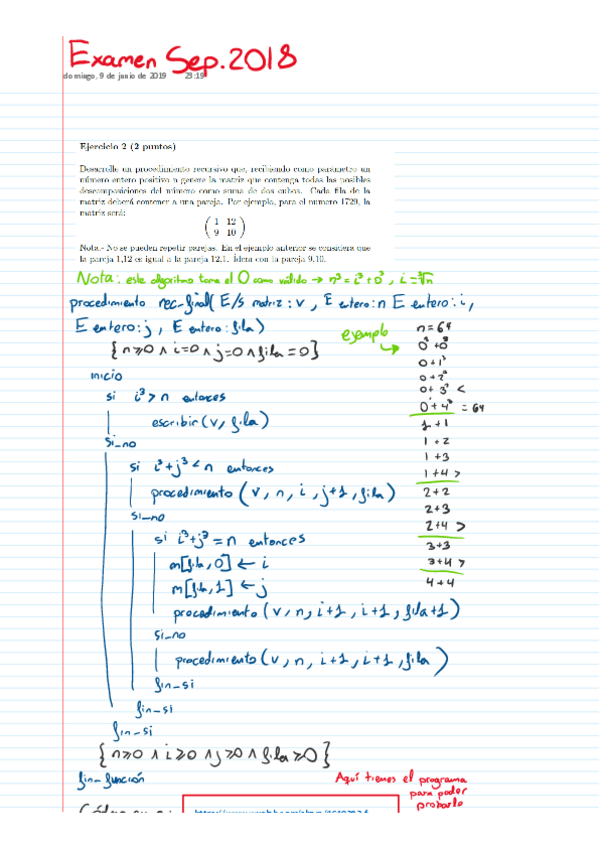 Examen Sep.2018
domingo, 9 de junio de 2019 23:19
Ejercicio 2 (2 puntos)
Desarrolle un procedimiento recursivo que, recibiendo como parámetro un
número entero positivo n genere la matriz que contenga todas las posibles
descomposiciones del número como suma de dos cubos. Cada fila de la
matriz deberá contener a una pareja. Por ejemplo, para el numero 1729, la
matriz será:
1 12
9 10
Nota.- No se pueden repetir parejas. En el ejemplo anterior se considera que
la pareja 1,12 es igual a la pareja 12,1. Ídem con la pareja 9,10.
Nota: este algoritmo toma el 0 como válido → n³ = i³ + 0³, i = ³√n
procedimiento rec_final( E/s matriz: v, E entero: n E entero: i,
E entero: j, E entero: fila)
{ n≥0 ∧ i=0 ∧ j=0 ∧ fila = 0}
inicio
si i³ > n entonces
escribir (v, fila)
si_no
si i³+j³ < n entonces
procedimiento (v, n, i, j+1, fila)
si_no
si i³+j³ = n entonces
m[fila, 0] ← i
m[fila, 1] ← j
procedimiento (v, n, i+1, i+1, fila+1)
si_no
procedimiento (v, n, i+1, i+1, fila)
fin-si
fin-si
fin-si
{ n≥0 ∧ i≥0 ∧ j≥0 ∧ fila ≥0}
fin-función
ejemplo
n = 64
0³ + 0³
0 + 1³
0 + 2³
0 + 3³ <
0³ + 4³ = 64
1 + 1
1 + 2
1 + 3
1 + 4 >
2 + 2
2 + 3
2 + 4 >
3 + 3
3 + 4 >
4 + 4
Aquí tienes el programa
para poder
probarlo